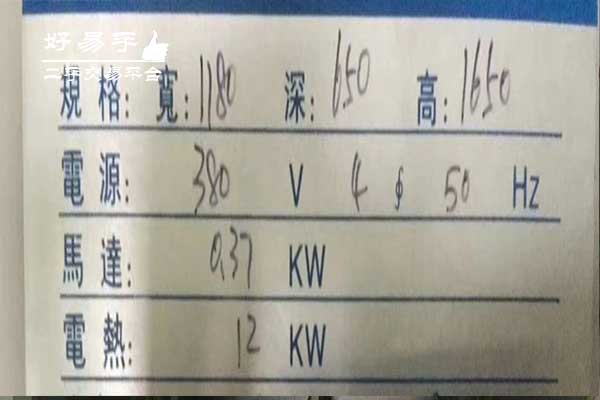 好易手
二手交易平台
規格: 寬: 1180 深: 650 高: 1650
電源: 380 V 4 ∮ 50 Hz
馬達: 0.37 KW
電熱: 12 KW